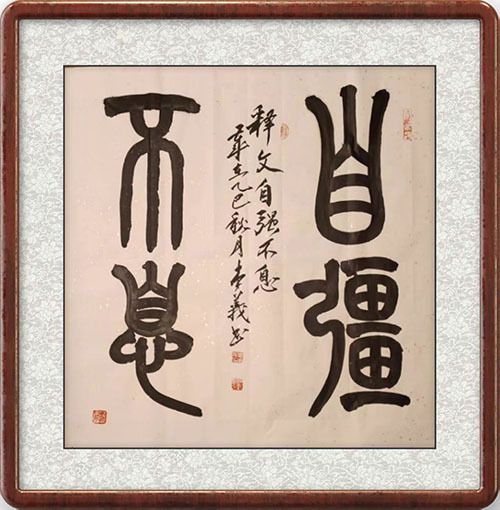 自彊
不息
释文自强不息
岁在乙巳秋月李義书